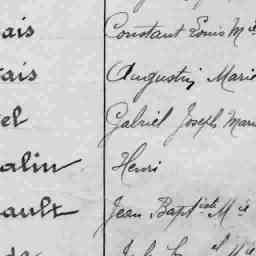 ais Constant Louis Mie
ais Augustin Marie
el Gabriel Joseph Marie
alin Henri
ault Jean Baptiste Mie